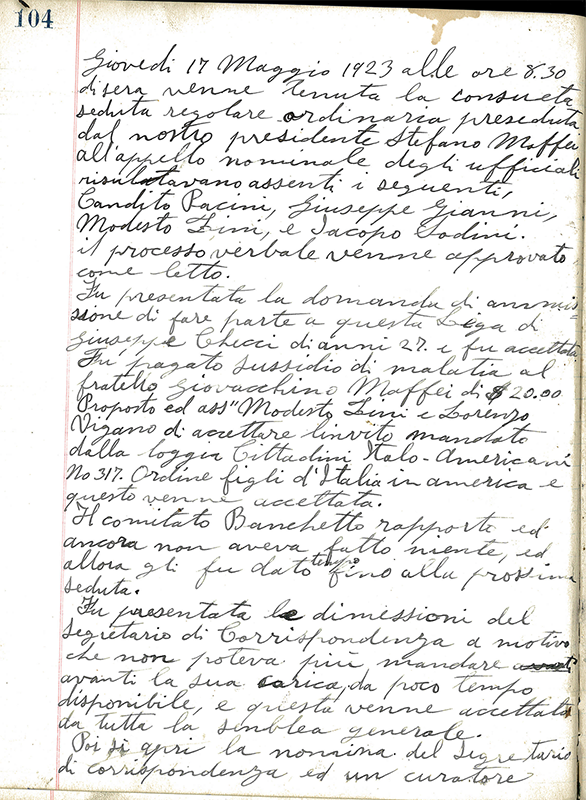 104
Giovedi 17 Maggio 1923 alle ore 8.30
di sera venne tenuta la consueta
seduta regolare ordinaria preseduta
dal nostro presidente Stefano Maffei
all'appello nominale degli ufficiali
risultavano assenti i seguenti,
Candito Pacini, Giuseppe Gianni,
Modesto Lini, e Jacopo Sodini.
il processo verbale venne approvato
come letto.
Fu presentata la domanda di ammis-
sione di fare parte a questa Lega di
Giuseppe Checci di anni 27. e fu accettata
Fu pagato sussidio di malatia al
fratello Giovacchino Maffei di $20.00
Proposto ed ass" Modesto Lini e Lorenzo
Vigano di accettare linvito mandato
dalla loggia Cittadini Italo-Americani
No 317. Ordine figli d'Italia in america e
questo venne accettata.
Il comitato Banchetto rapporto ed
ancora non aveva fatto niente, ed
allora gli fu dato tempo fino alla prossima
seduta.
Fu presentata le dimessioni del
Segretario di Corrispondenza a motivo
che non poteva più mandare
avanti la sua carica, da poco tempo
disponibile, e questa venne accettata
da tutta la senblea generale.
Poi si apri la nomina del Segretario
di corrispondenza ed un curatore